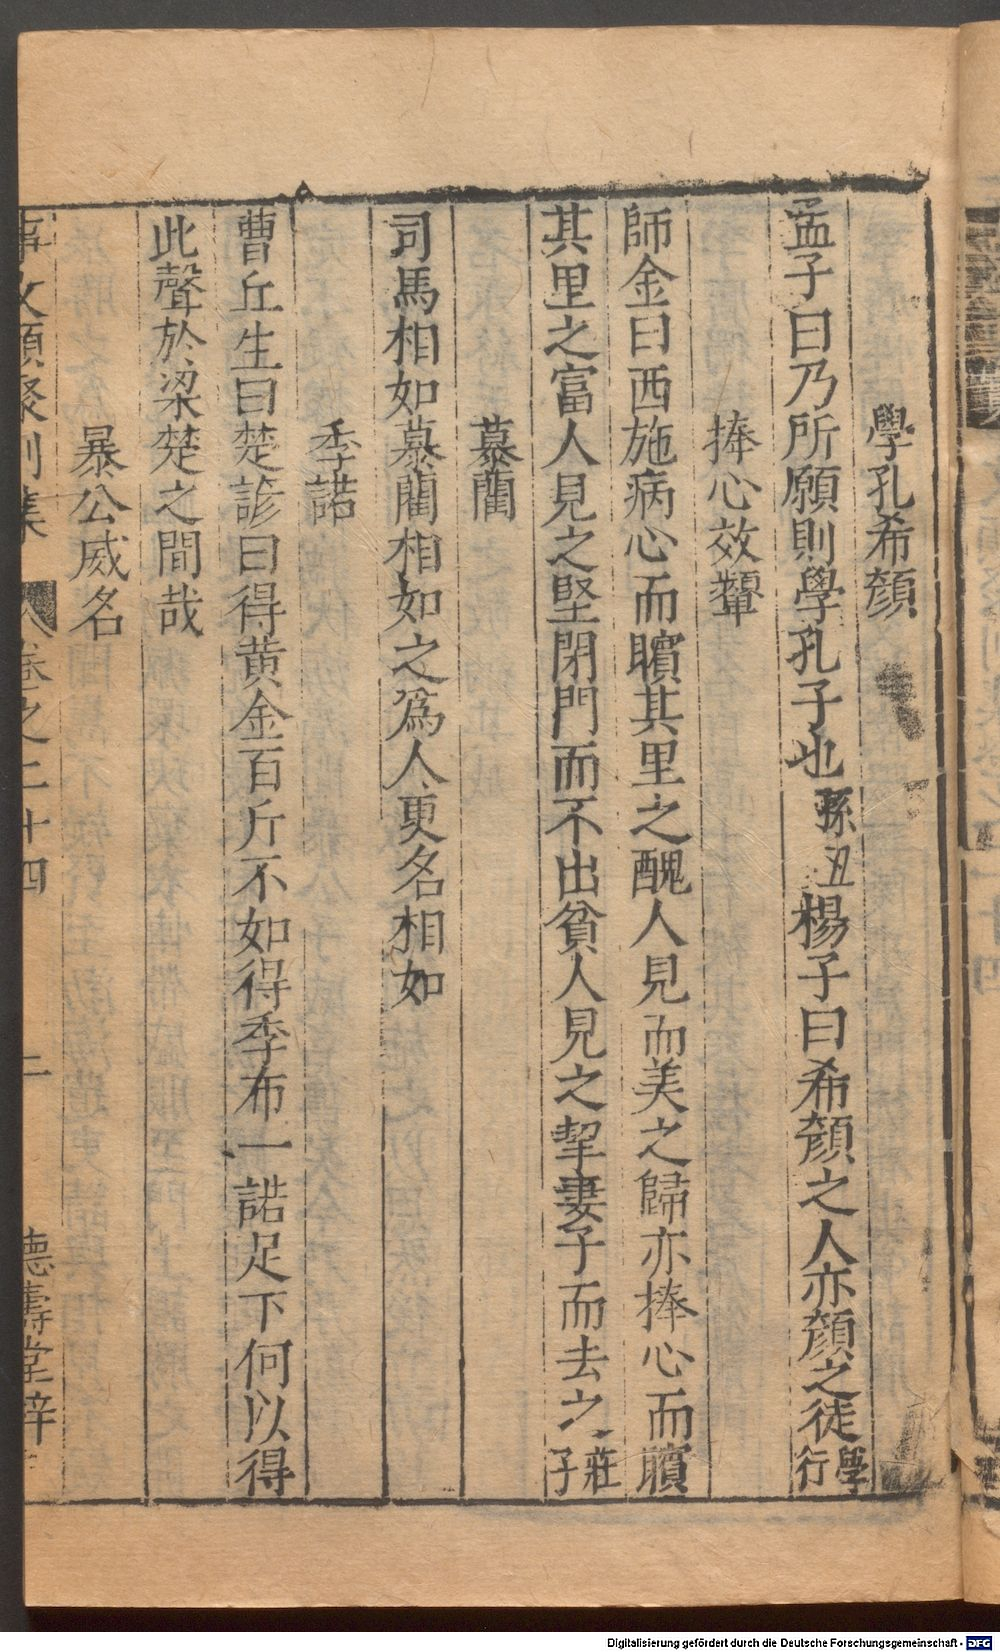 學孔希顏
孟子曰乃所願則學孔子也孫丑楊子曰希顏之人亦顏之徒學行
捧心效顰
師金曰西施病心而臏其里之醜人見而美之歸亦捧心而臏
其里之富人見之堅閉門而不出貧人見之挈妻子而去之莊子
慕藺
司馬相如慕藺相如之爲人更名相如
季諾
曹丘生曰楚諺曰得黄金百斤不如得季布一諾足下何以得
此聲於梁楚之間哉
暴公威名
事文類聚別集 卷之二十四 二 德壽堂梓
Digitalisierung gefördert durch die Deutsche Forschungsgemeinschaft - DFG